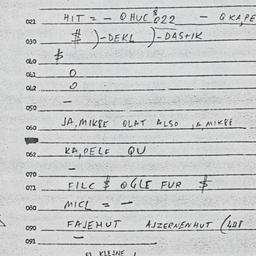 021 HIT = - OHUC $022 - OKA,PE
030 $ )-DEKL )-DASTIK
040 $
041 O
042 O
-
050
060 JA,MIKBE OLAT ALSO JA MIKBE
062 KA,PELE QU
070 -
071 FILC $ OGLE FUR $
080 MICL = -
090 FAJEHUT AJZERNENHUT (
091 -
KLEINE